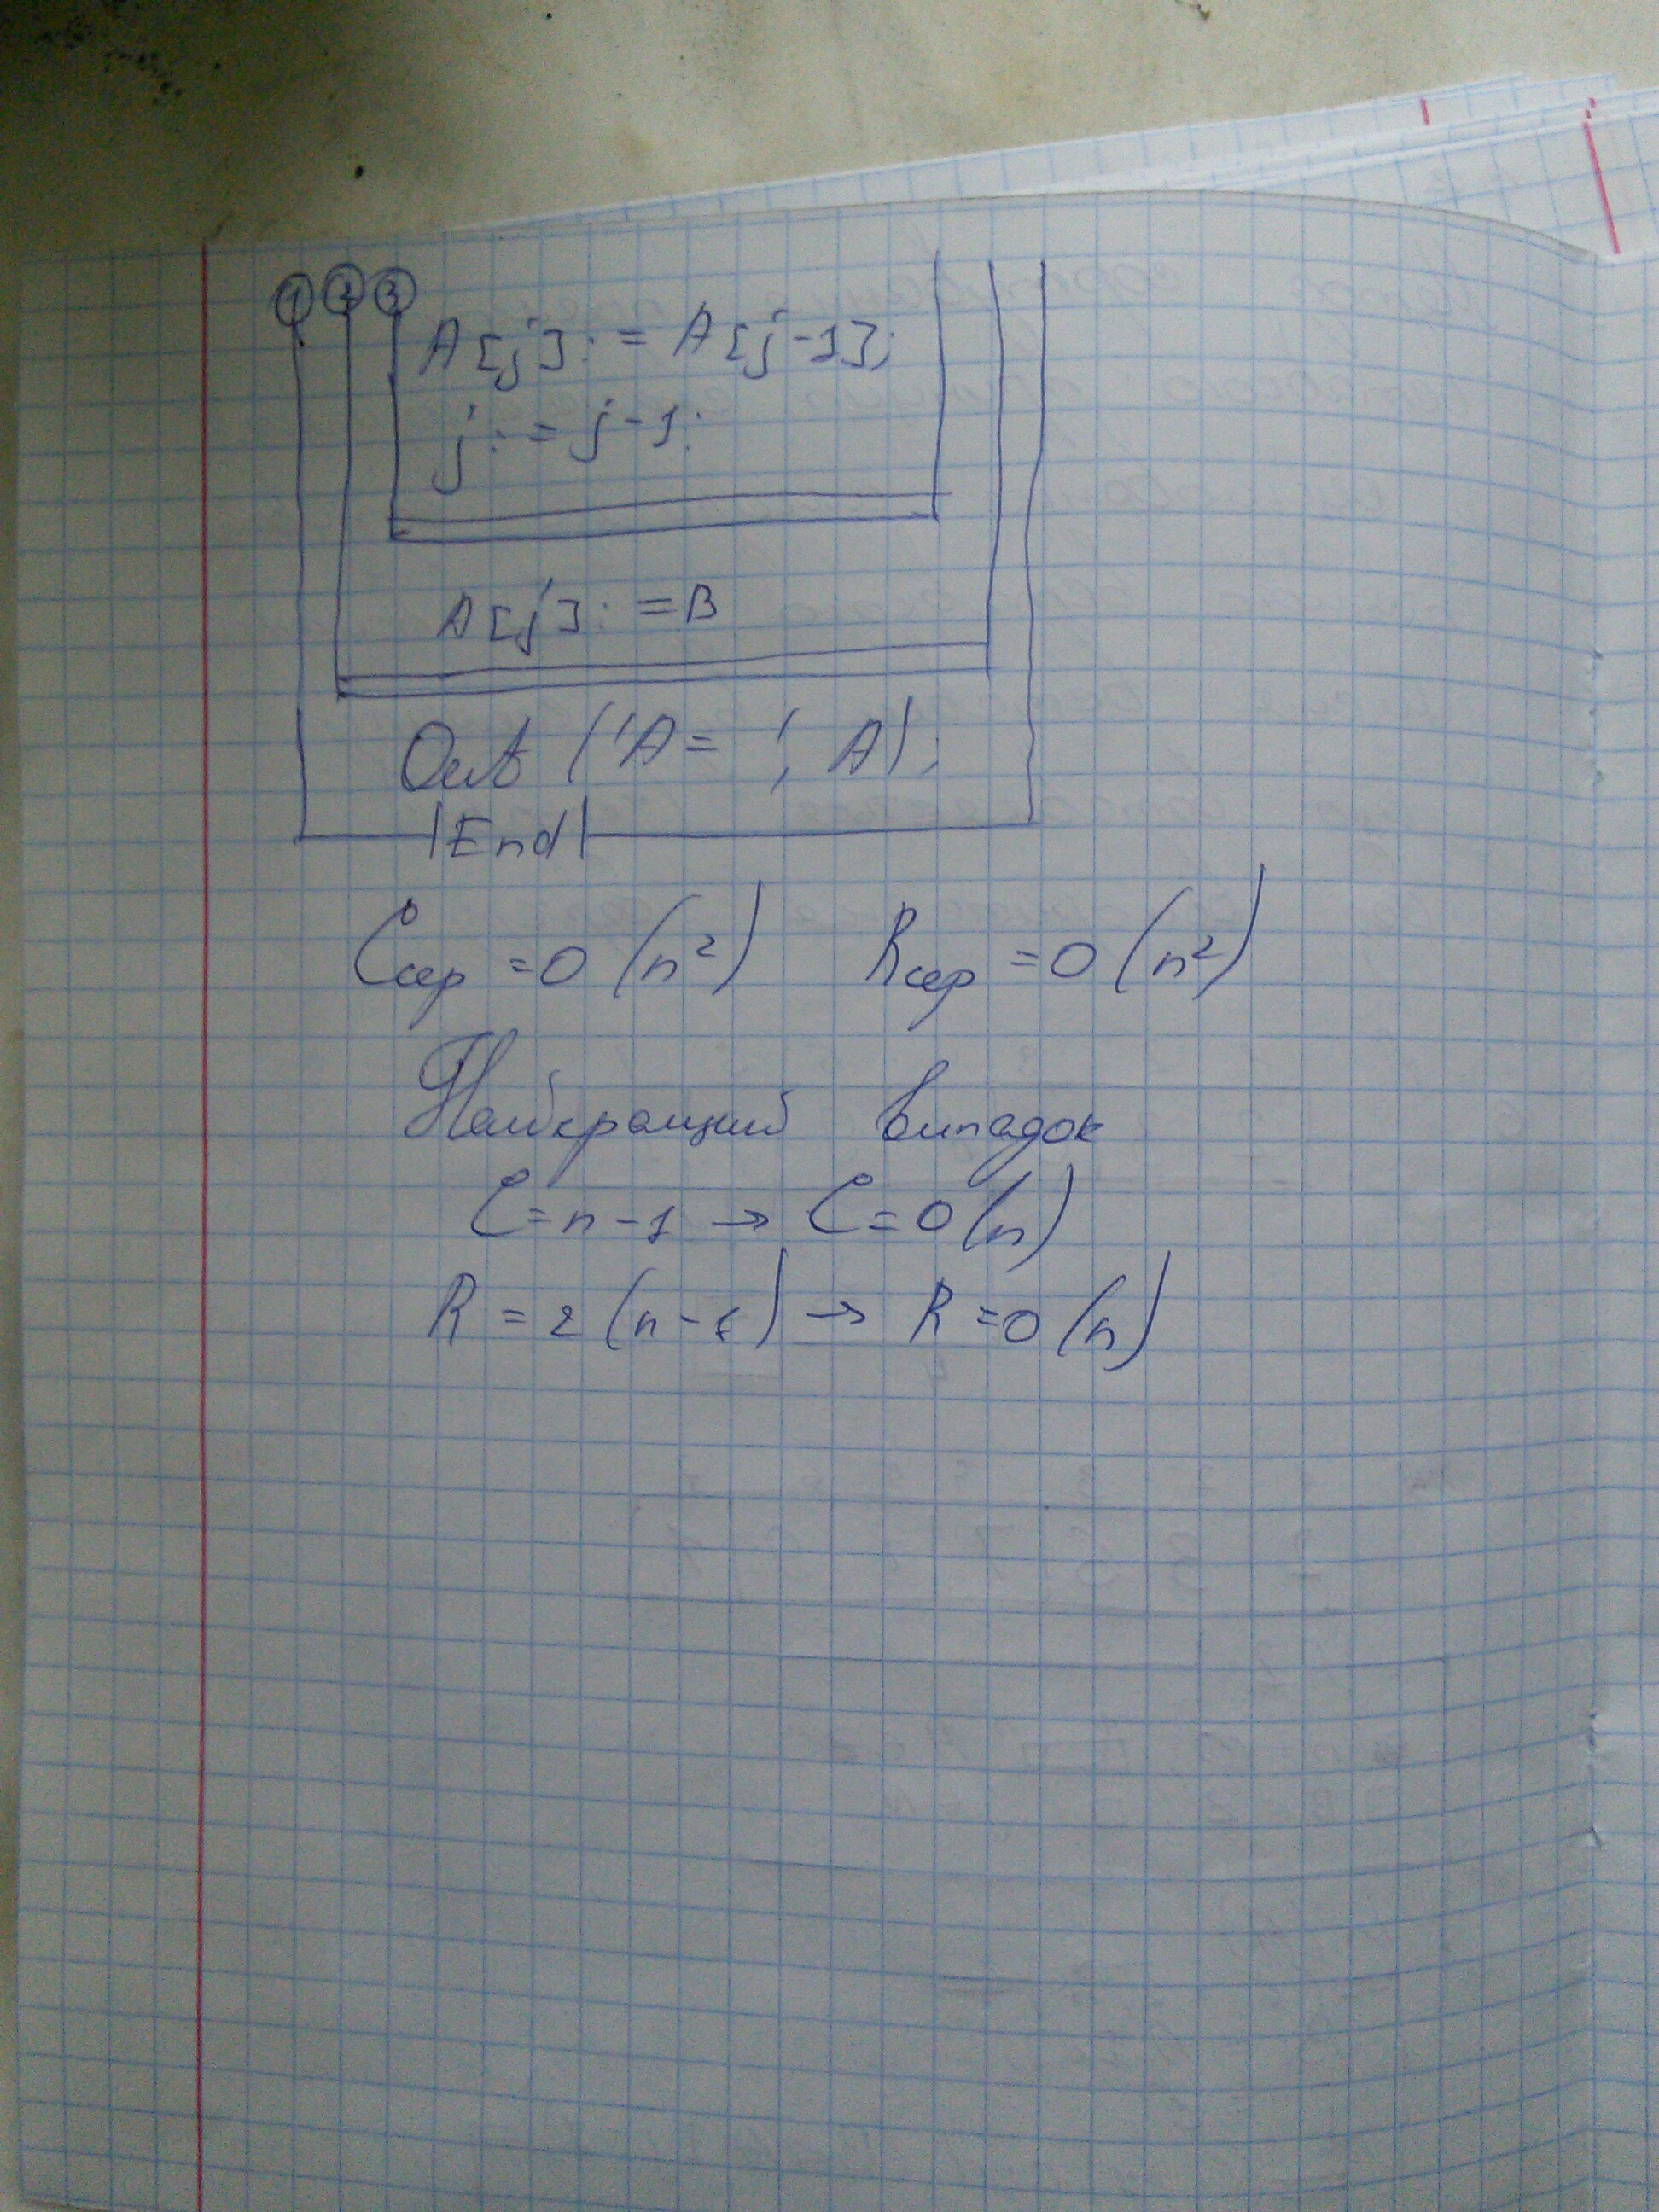 1 2 3
A[j] := A[j-1];
j := j-1;
A[j] := B
Out ('A= ', A);
End
Cсер = O(n²) Rсер = O(n²)
Найкращий випадок
C = n-1 → C = O(n)
R = 2(n-1) → R = O(n)